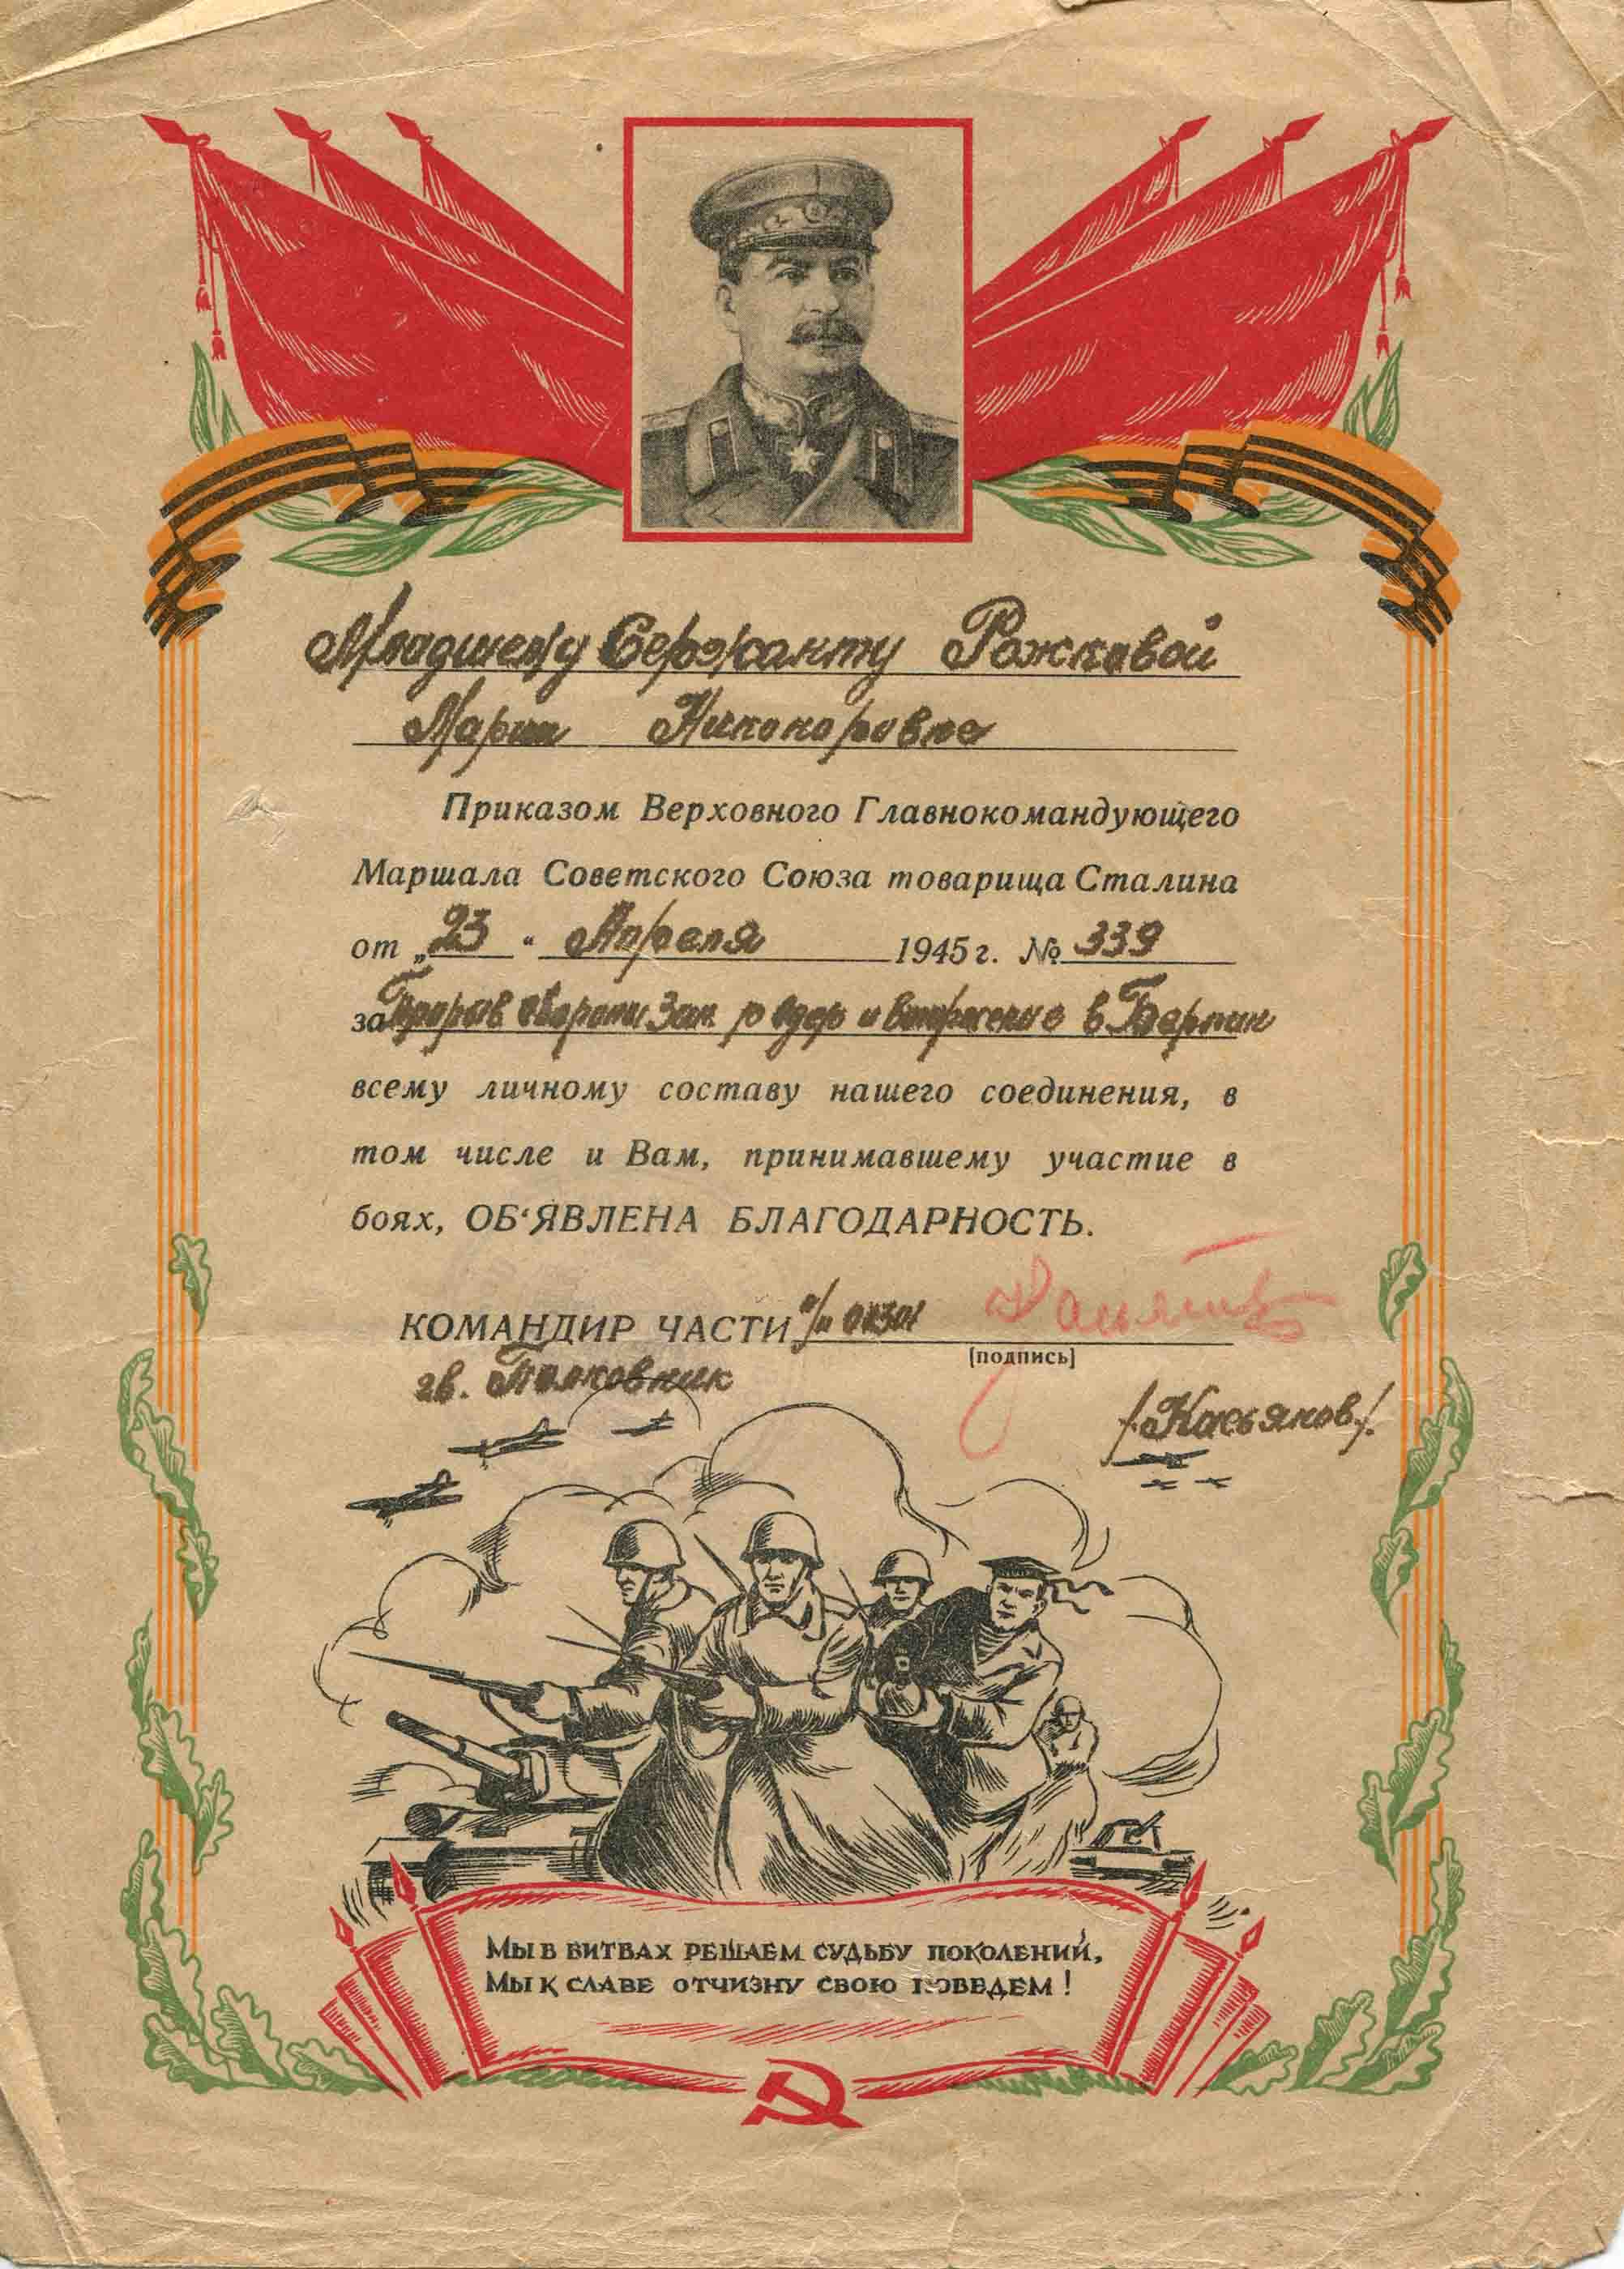 Младшему Сержанту Рожковой
Марии Никоноровне
Приказом Верховного Главнокомандующего
Маршала Советского Союза товарища Сталина
от „23“ Апреля 1945 г. № 339
за Прорыв обороны Зап. р Одер и вторжение в Берлин
всему личному составу нашего соединения, в
том числе и Вам, принимавшему участие в
боях, ОБ‘ЯВЛЕНА БЛАГОДАРНОСТЬ.
КОМАНДИР ЧАСТИ п/п
(подпись)
гв. Полковник
/Касьянов/.
Мы в битвах решаем судьбу поколений,
Мы к славе отчизну свою поведем!